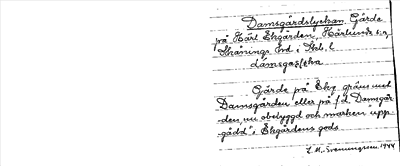 Damsgårdslyckan. Gärde
på Härl. Ekgården, Härlunda s:n,
Skånings hd i Skb. l.
dámsgaɹʃɛka
Gärde på Ekg. gräns med
Damsgården eller på f.d. Damsgår-
den, nu obebyggd och marken "upp-
gådd" i Ekgårdens gods
L. M. Svenungsson 1944